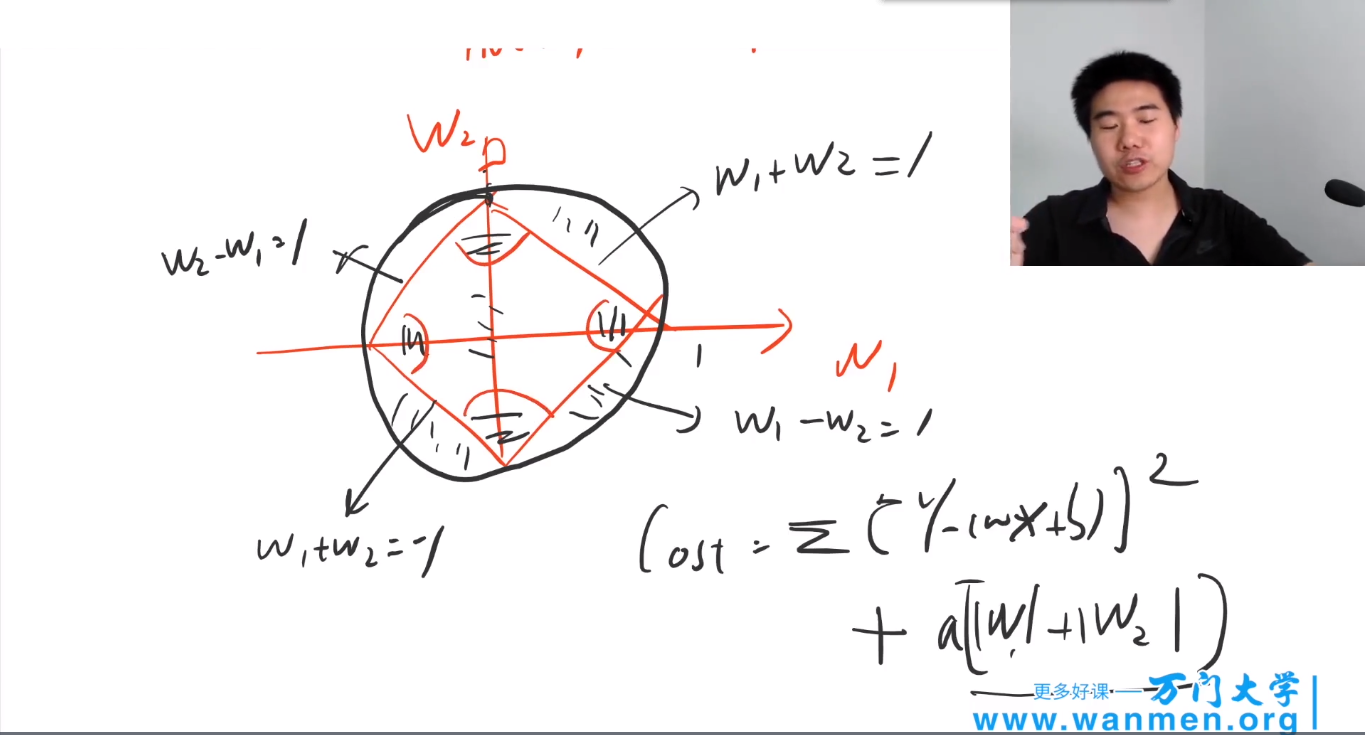 W₂
W₁+W₂=1
W₂-W₁=1
1
W₁
W₁-W₂=1
W₁+W₂=-1
Cost = Σ[Y-(wx+b)]²
+ a[|W₁|+|W₂|]
更多好课——万门大学
www.wanmen.org